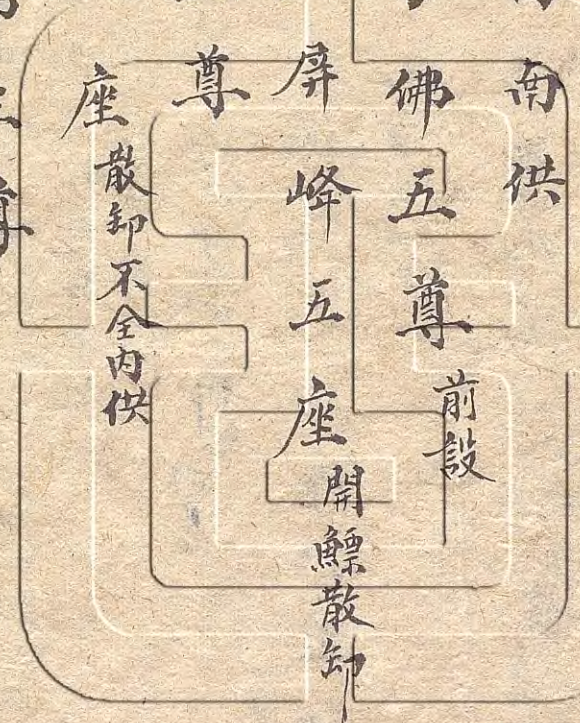 南供
佛五尊前設
屏峰五座開鰾散卸
尊
座散卸不全内供